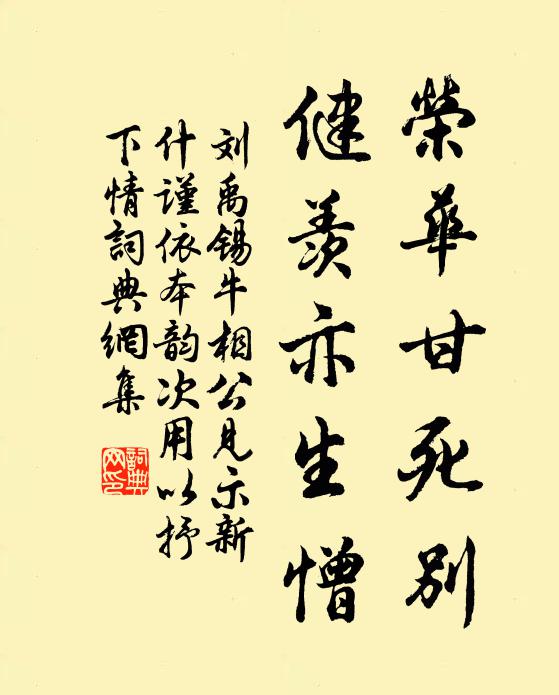 榮華甘死別
健羨亦生憎
刘禹锡牛相公見示新
什谨依本韵次用以抒
下情詞典網集
詞典網印